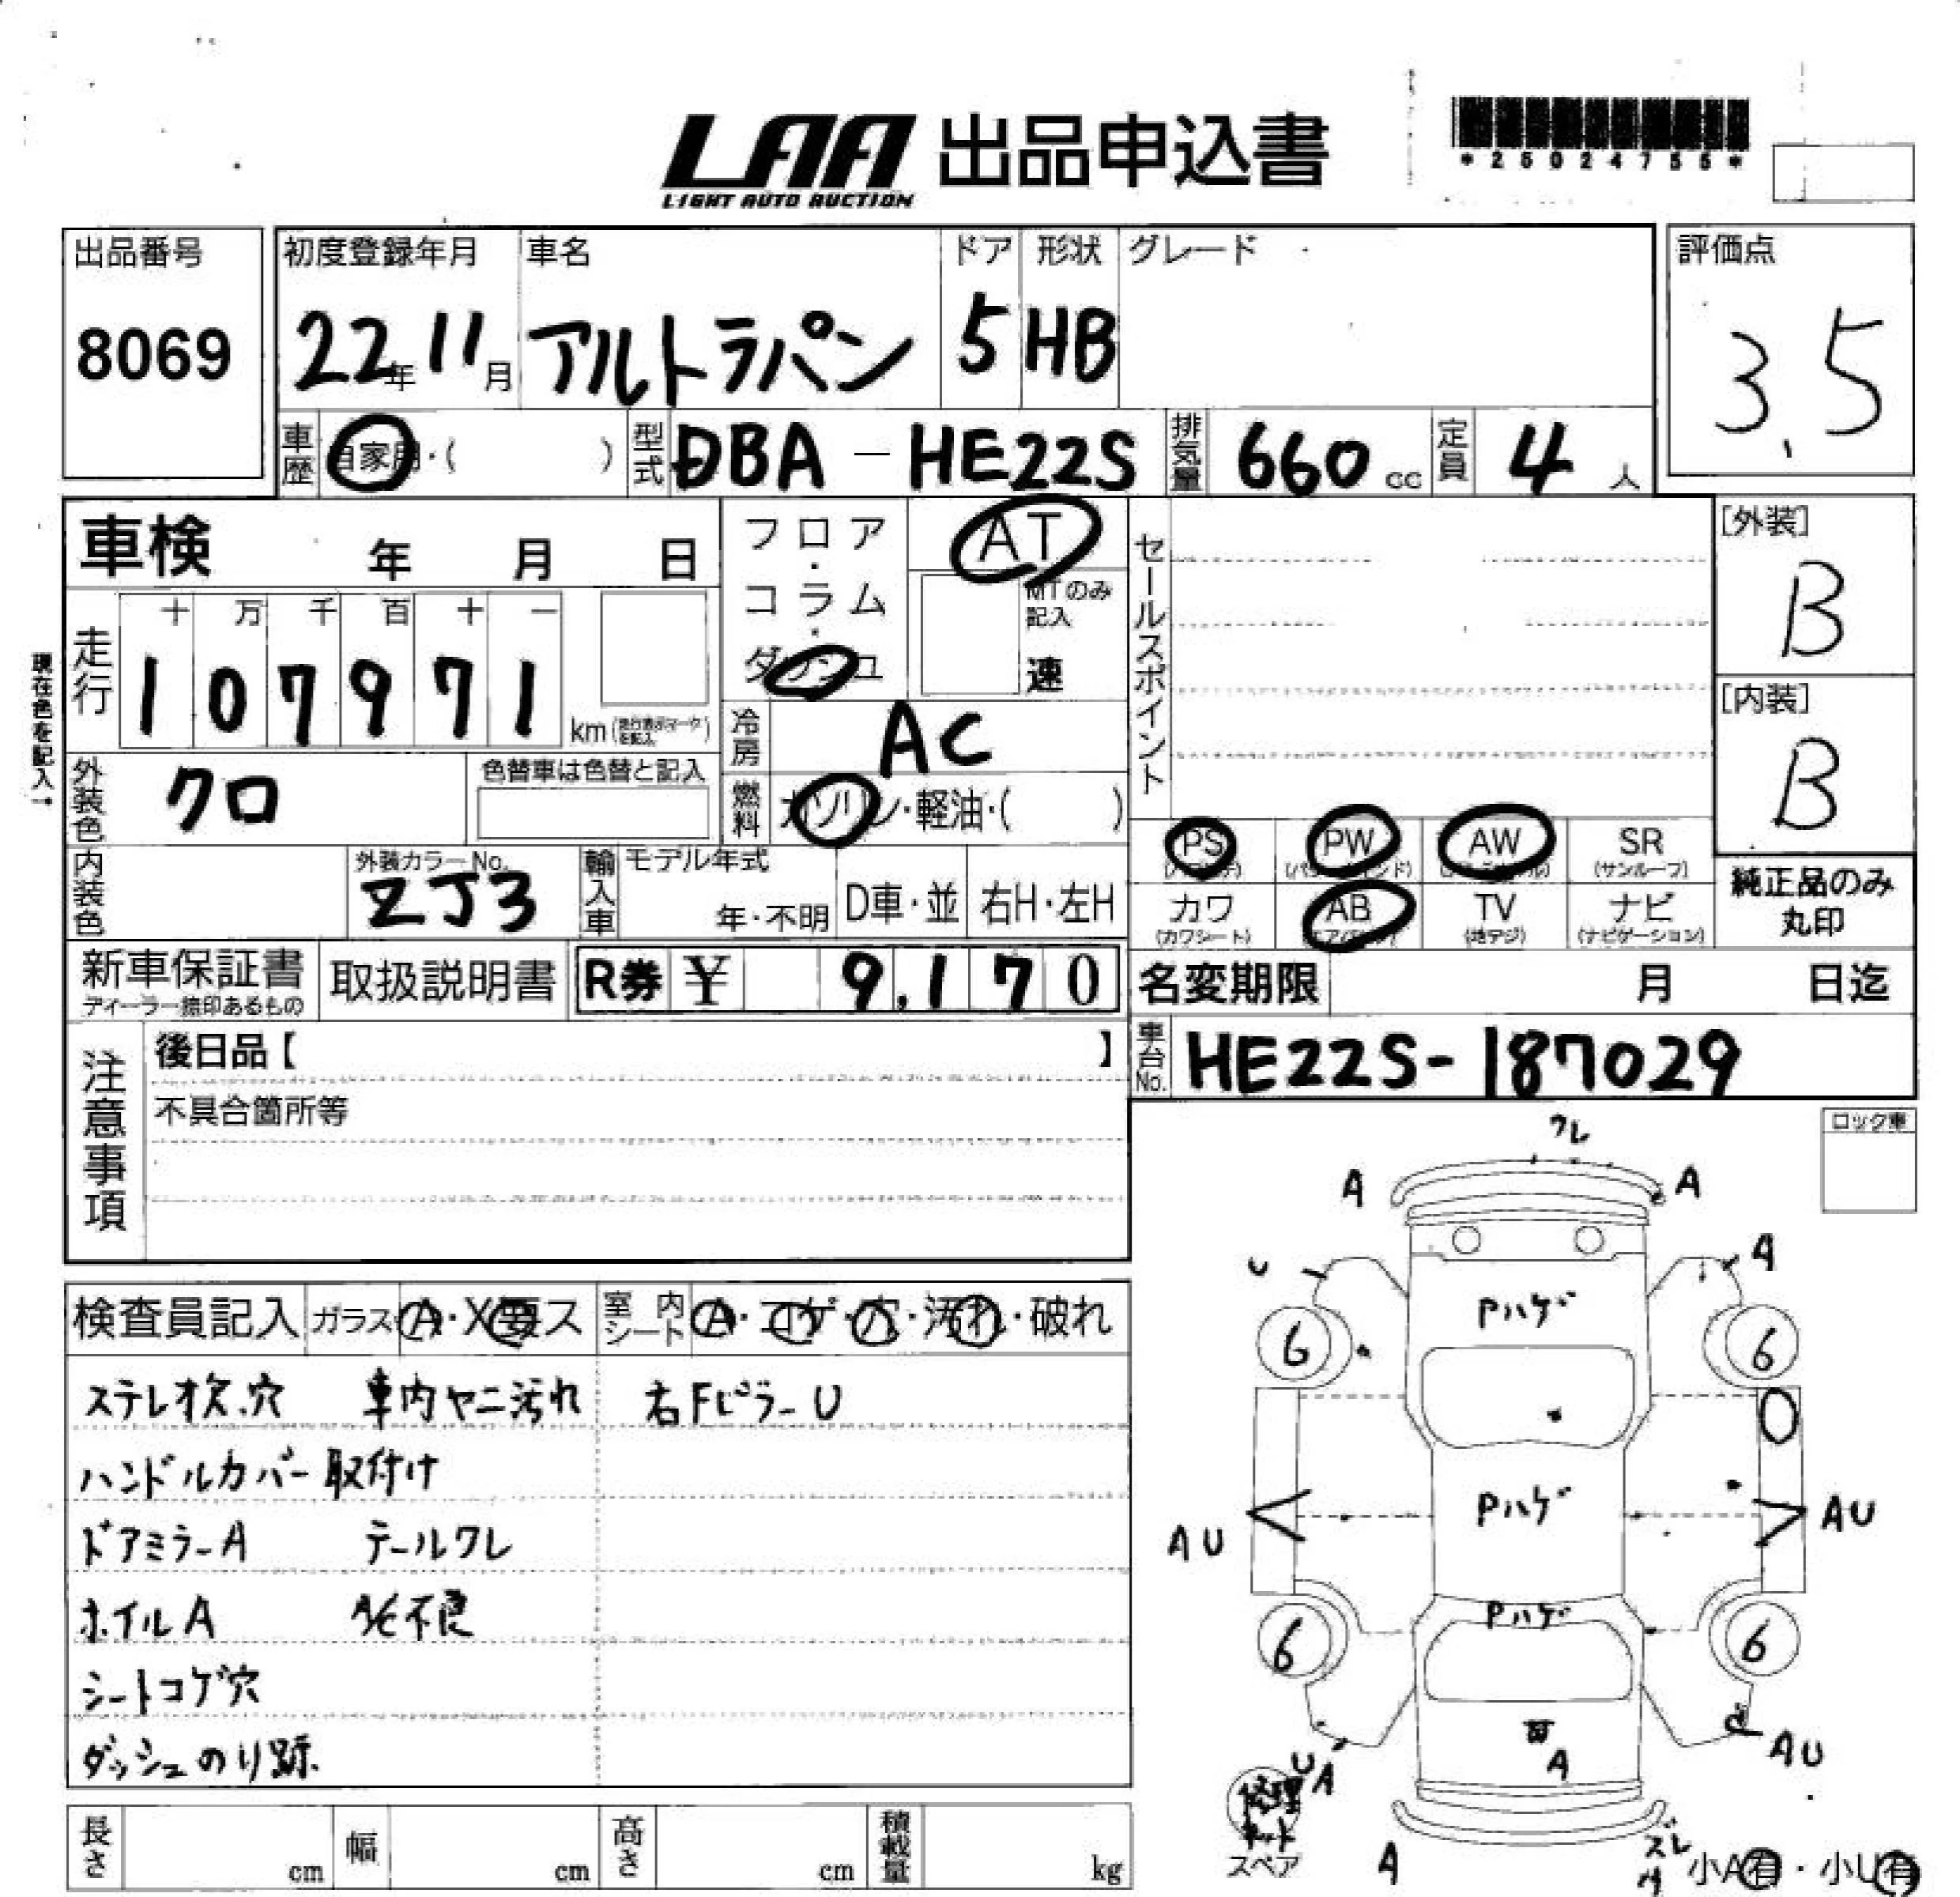 LAA 出品申込書
LIGHT AUTO AUCTION
*25024755*
出品番号 初度登録年月 車名 ドア 形状 グレード 評価点
8069 22年11月 アルトラパン 5 HB 3.5
車歴 自家用・( ) 型式 DBA-HE22S 排気量 660cc 定員 4人
車検 年 月 日
フロア・コラム・ダッシュ
AT
MTのみ記入
速
セールスポイント
[外装]
B
[内装]
B
現在色を記入→
走行 十 万 千 百 十 一
107971 km
冷房 AC
外装色 クロ 色替車は色替と記入
燃料 ガソリン・軽油・( )
PS PW AW SR
(サンルーフ)
カワ AB TV ナビ
(カワシート) (エアバッグ) (地デジ) (ナビゲーション)
純正品のみ
丸印
内装色 外装カラーNo. ZJ3
輸入車 モデル年式 年・不明 D車・並 右H・左H
新車保証書 取扱説明書 R券 ¥ 9,170
ディーラー捺印あるもの
名変期限 月 日迄
車台No. HE22S-187029
注意事項
後日品【 】
不具合箇所等
ロック車
検査員記入 ガラス A・X要ス 室内シート A・コゲ・穴・汚れ・破れ
ステレオ欠.穴 車内ヤニ汚れ 右FピラーU
ハンドルカバー取付け
ドアミラーA テールワレ
ホイルA A/C不良
シートコゲ穴
ダッシュのり跡.
長さ cm 幅 cm 高さ cm 積載量 kg
ワレ
A A
U A
Pハゲ
6 6
Pハゲ
AU AU
Pハゲ
6 6
A
UA AU
修理
キット
スペア
A
ズレ
小A有・小U有